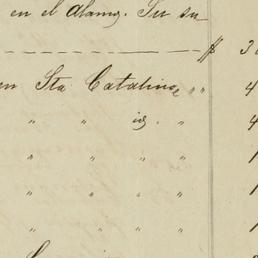 en el alamo. Su su
$ 3
en Sta Catalina " " 4
" " id. " 4
" " " " 1
" " " " 1
" " " " 1